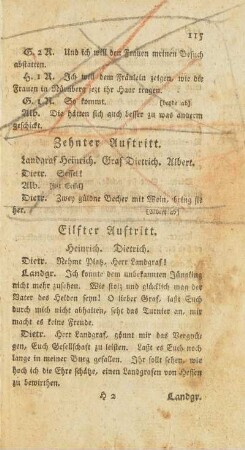 115
G. 2 R. Und ich will den Frauen meinen Besuch
abstatten.
H. 1 R. Ich will dem Fräulein zeigen, wie die
Frauen in Nürnberg jezt ihr Haar tragen.
G. 1 R. So kommt. (beyde ab)
Alb. Die hätten sich auch besser zu was anderm
geschickt.
Zehnter Auftritt.
Landgraf Heinrich. Graf Dietrich. Albert.
Dietr. Sessel!
Alb.
Dietr. Zwey güldne Becher mit Wein, bring sie
her. (Albert ab)
Eilfter Auftritt.
Heinrich. Dietrich.
Dietr. Nehmt Platz, Herr Landgraf!
Landgr. Ich konnte dem unbekannten Jüngling
nicht mehr zusehen. Wie stolz und glücklich muß der
Vater des Helden seyn! O lieber Graf, laßt Euch
durch mich nicht abhalten, seht das Turnier an, mir
macht es keine Freude.
Dietr. Herr Landgraf, gönnt mir das Vergnü-
gen, Euch Gesellschaft zu leisten. Laßt es Euch noch
lange in meiner Burg gefallen. Ihr sollt sehen, wie
hoch ich die Ehre schätze, einen Landgrafen von Hessen
zu bewirthen.
H 2 Landgr.